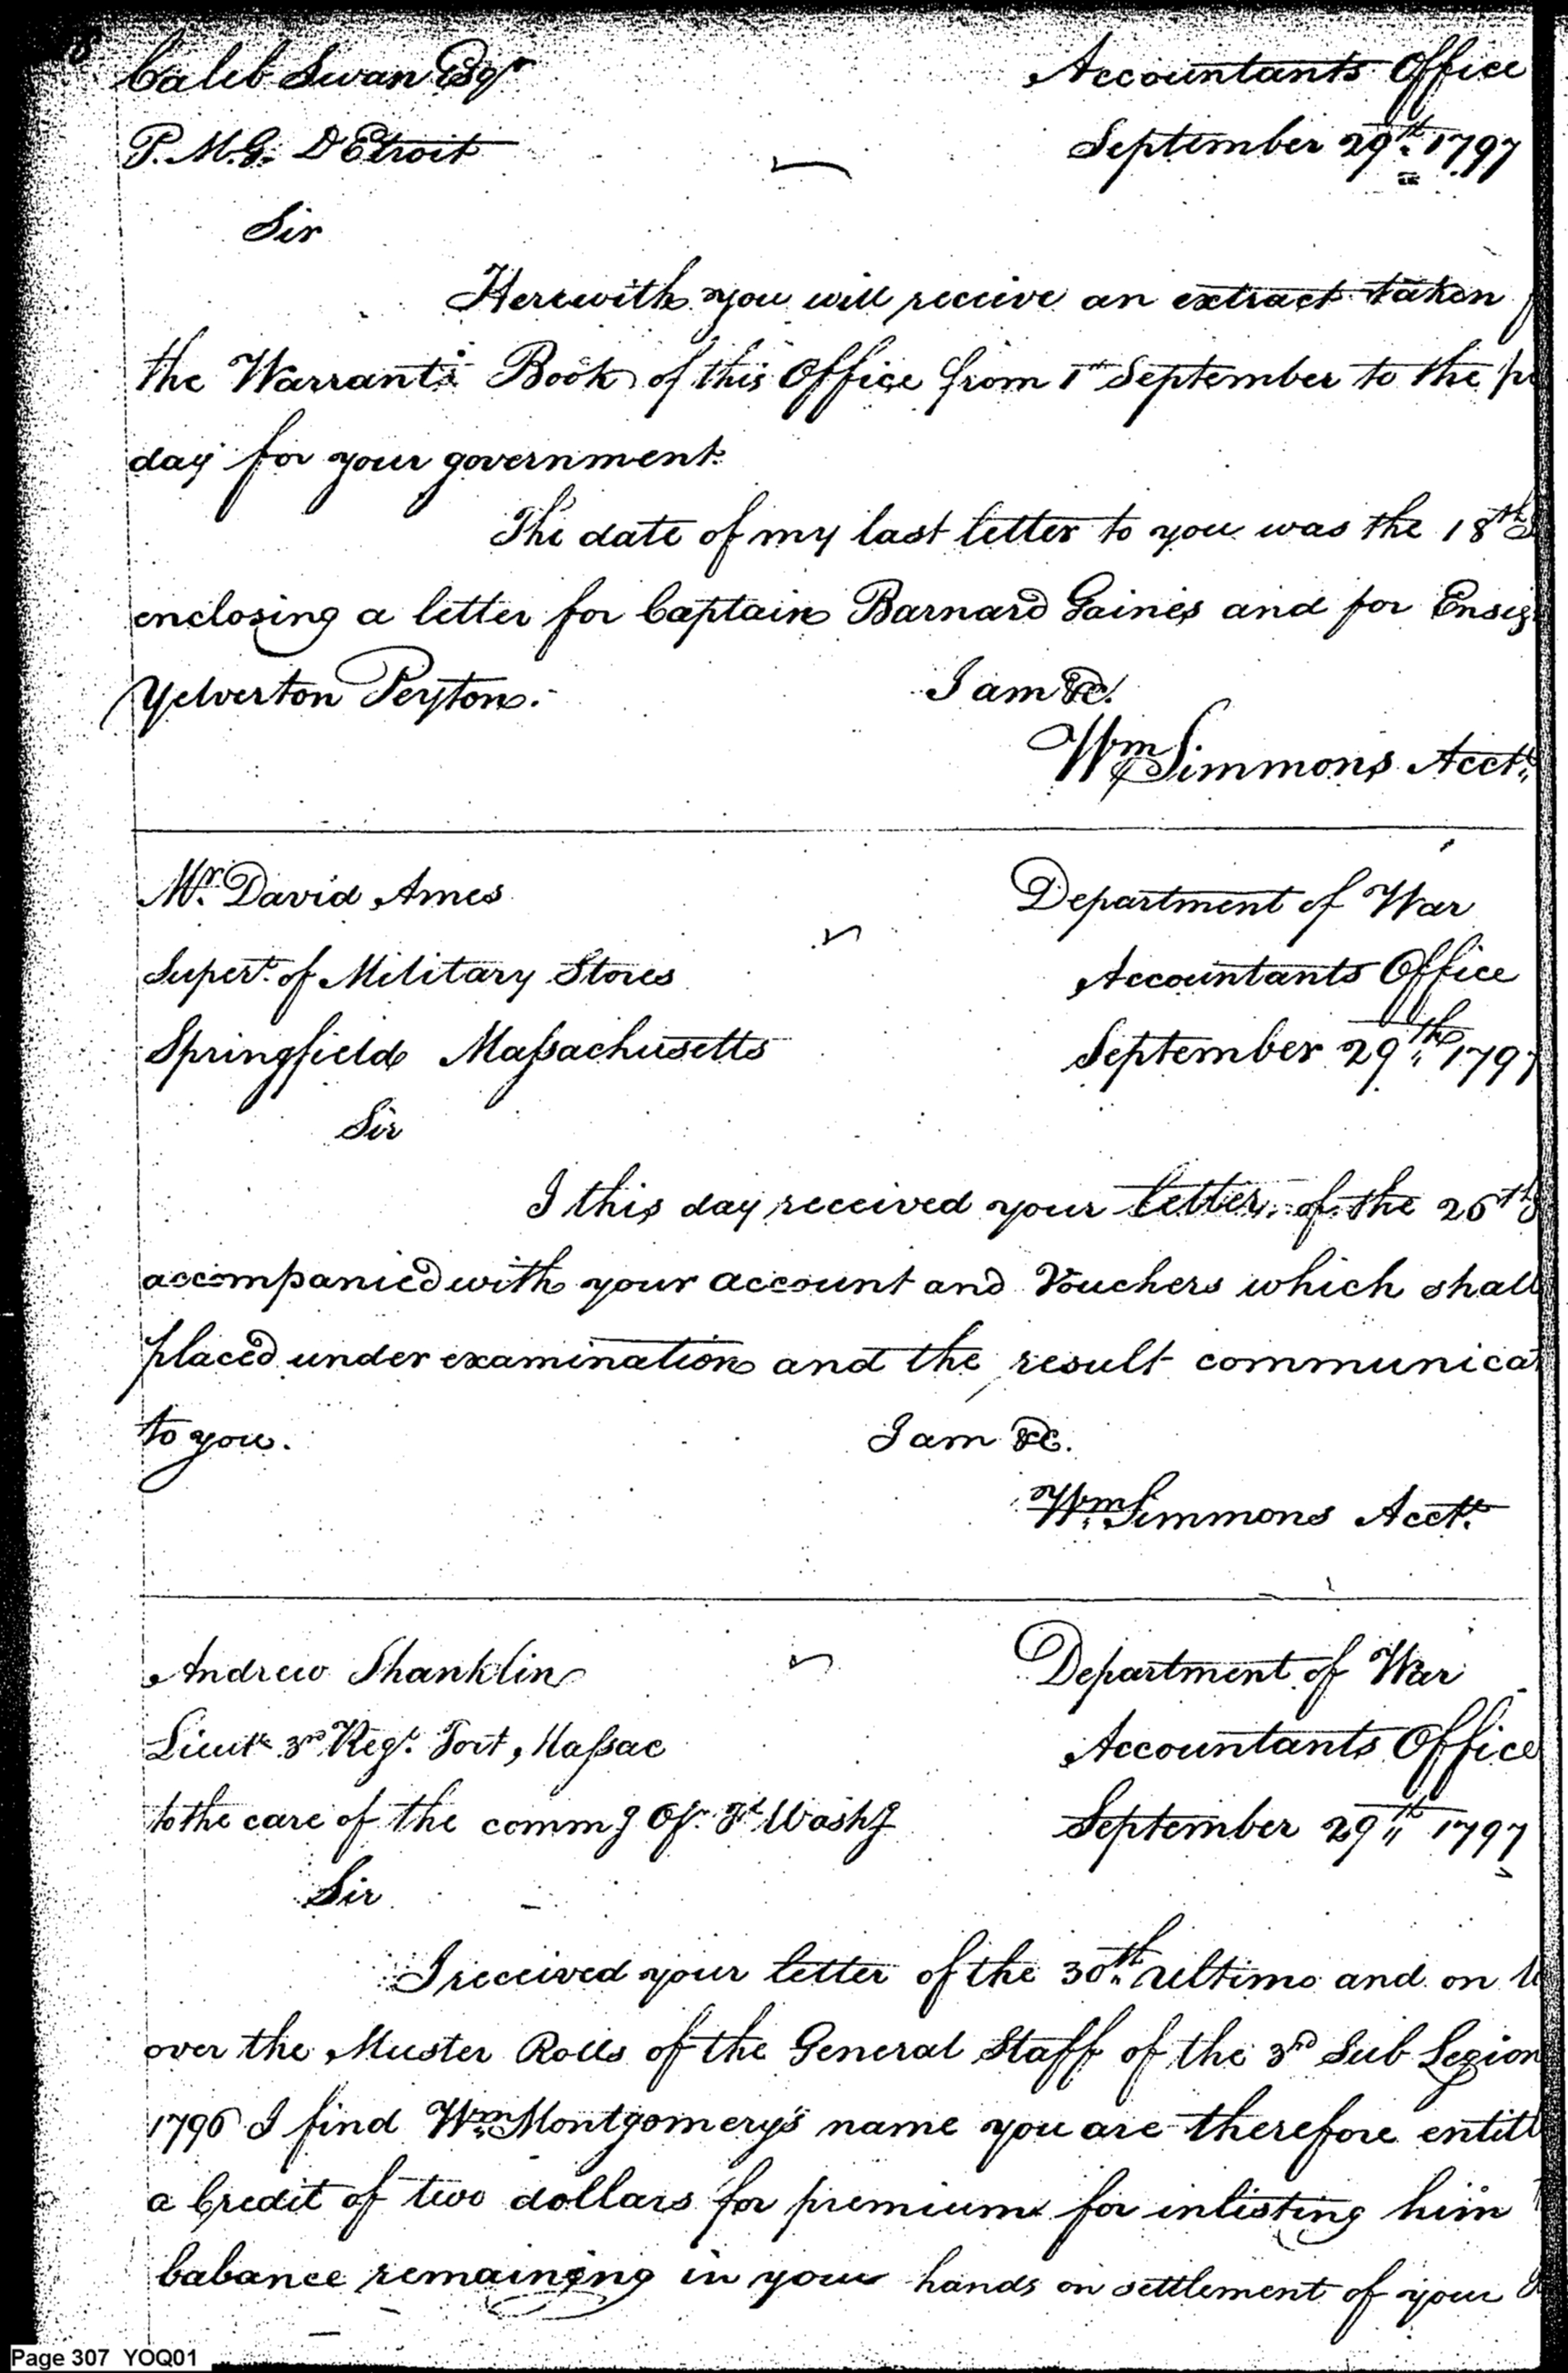 Caleb Swan Esqr
Accountants Office
P.M.G. DEtroit
September 29th 1797
Sir
Herewith you will receive an extract taken
the Warrants Book of this Office from 1st September to the
day for your government.
The date of my last letter to you was the 18th
enclosing a letter for Captain Barnard Gaines and for
Yelverton Peyton.
I am &c.
Wm Simmons Acct.
Mr. David Ames
Department of War
Supert. of Military Stores
Accountants Office
Springfield Massachusetts
September 29th 1797
Sir
I this day received your letter of the 26th
accompanied with your account and Vouchers which shall
placed under examination and the result communicat
to you.
I am &c.
Wm Simmons Acct.
Andrew Shanklin
Department of War
Lieut 3rd Regt. Fort Massac
Accountants Office
to the care of the commg Ofr. Ft Washg
September 29th 1797
Sir
I received your letter of the 30th ultimo and on
over the Muster Rolls of the General Staff of the 3rd Sub Legion
1796 I find Wm Montgomery's name you are therefore entitl
a Credit of two dollars for premium for inlisting him
babance remaining in your hands on settlement of your
Page 307 YOQ01